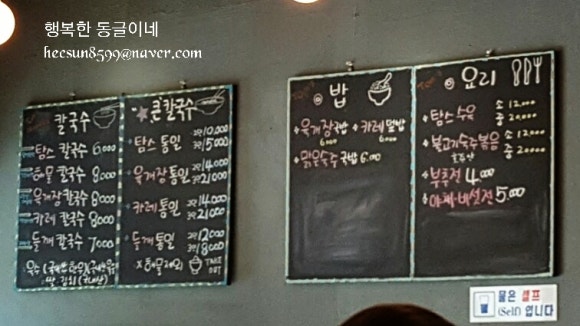 행복한 동글이네
hecsun8599@naver.com
칼국수
탐스 칼국수 6.000
해물 칼국수 8000
육개장칼국수 8000
카레 칼국수 8000
들깨 칼국수 7000
큰칼국수
탐스 통일
10.000
15.000
육개장통일
14.000
21.000
카레통일
14.000
21.000
들깨통일
12000
18000
X해물제외
TAKE OUT
밥
육개장국밥 6.000
카레덮밥 6.000
맑은숙주국밥 6.000
요리
탐스수육
소 12,000
중 20,000
불고기숙주볶음
소 12.000
중 20000
부추전 4.000
야채·버섯전 5.000
물은 셀프
(Self) 입니다